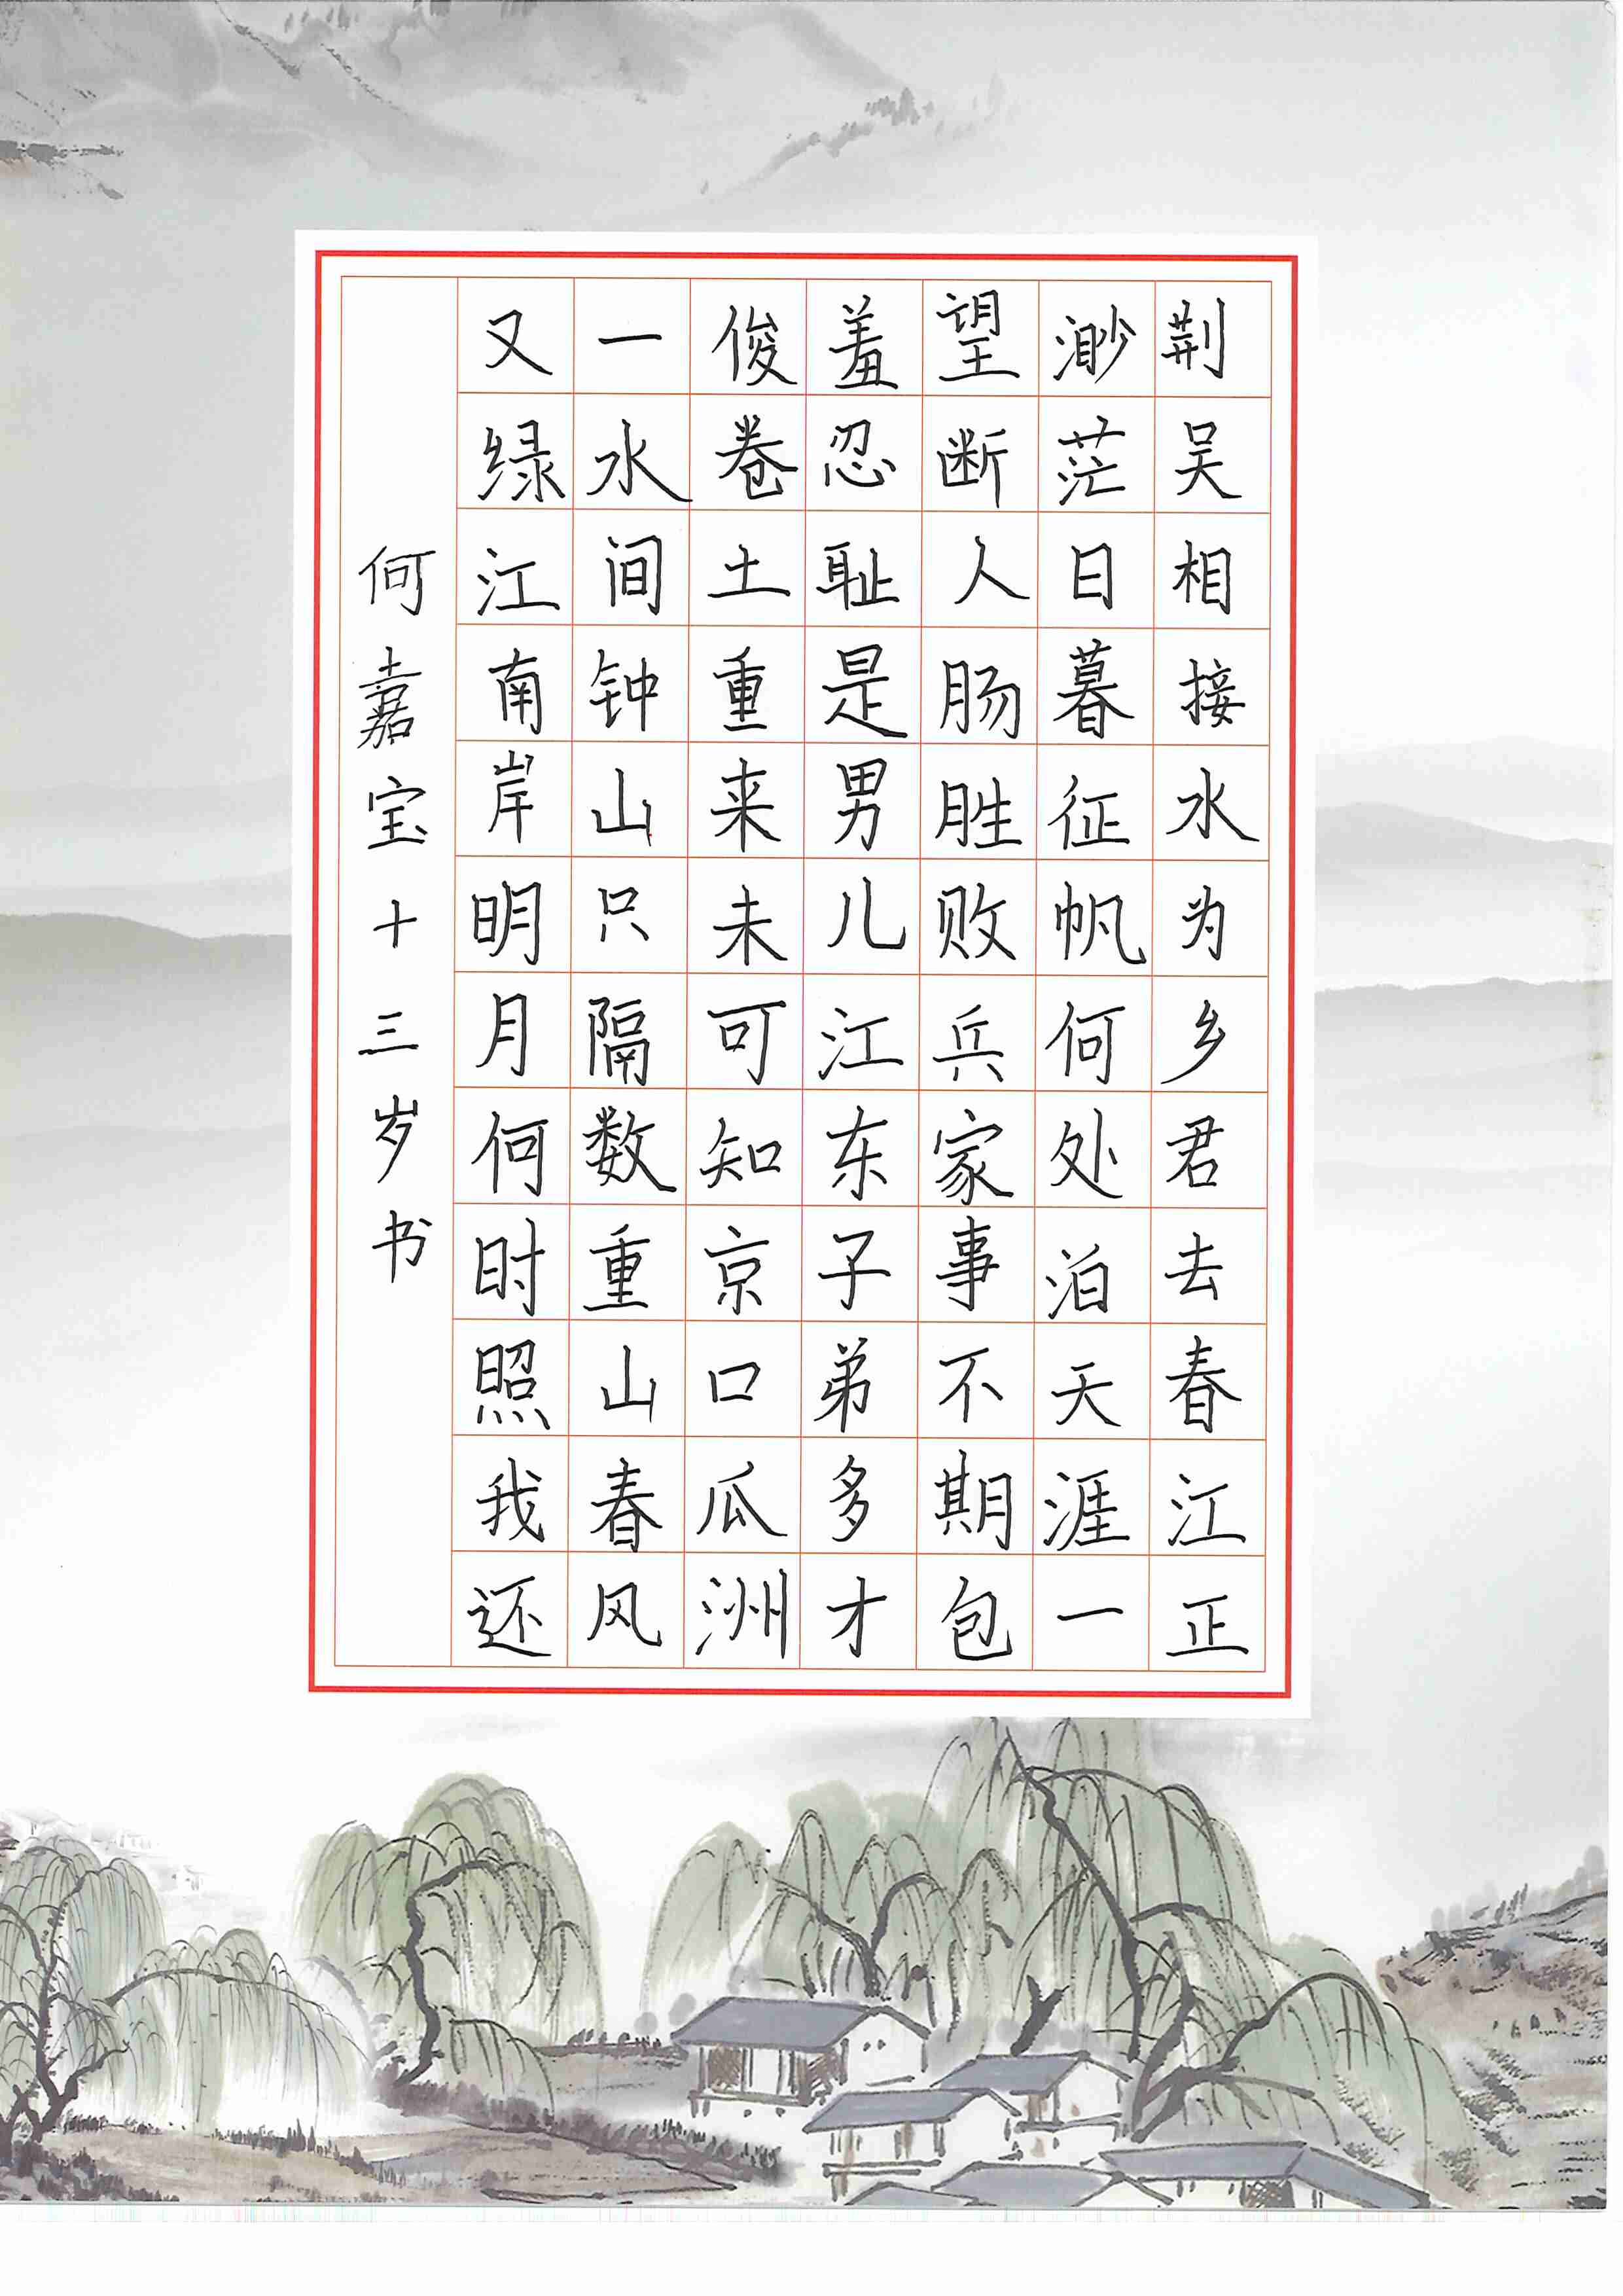 荆吴相接水为乡君去春江正
渺茫日暮征帆何处泊天涯一
望断人肠胜败兵家事不期包
羞忍耻是男儿江东子弟多才
俊卷土重来未可知京口瓜洲
一水间钟山只隔数重山春风
又绿江南岸明月何时照我还
何嘉宝十三岁书